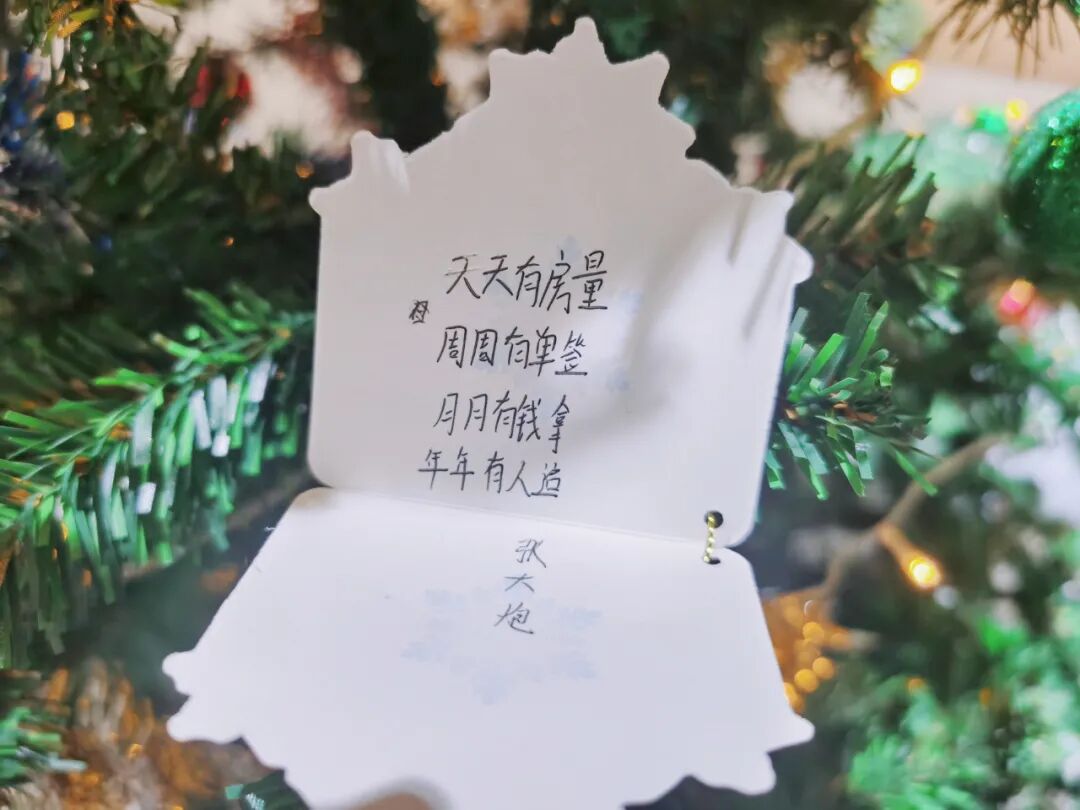 天天有房量
周周有单签
月月有钱拿
年年有人追
张大炮